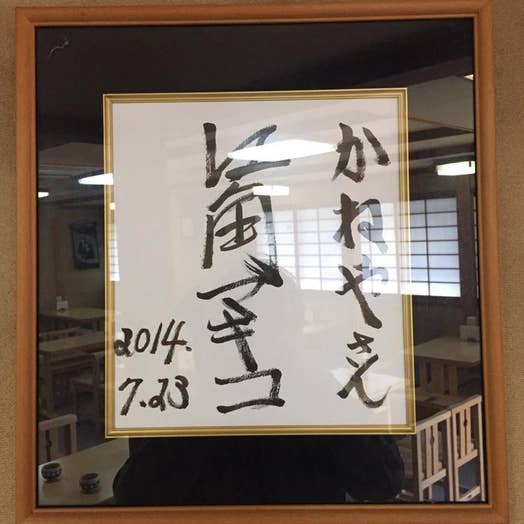 かねやさん
江角マキコ
2014.
7.23